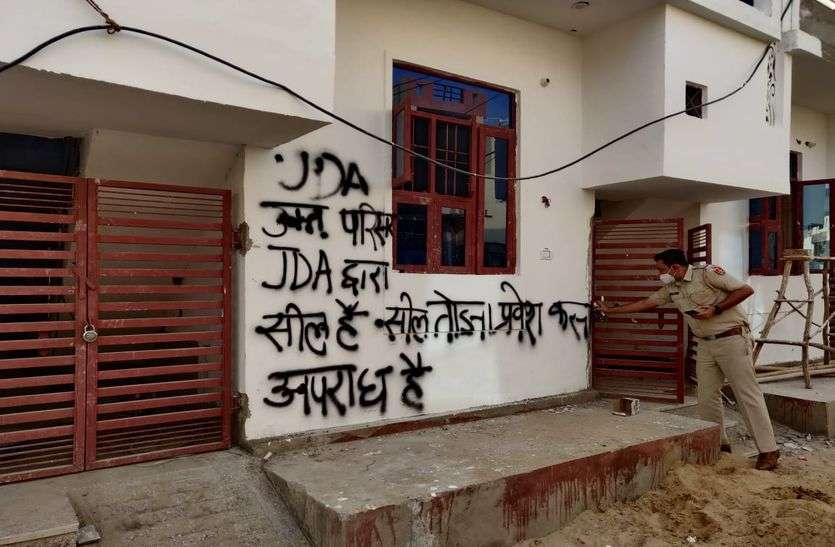 JDA
उक्त परिसर
JDA द्वारा
सील है सील तोडना प्रवेश करना
अपराध है